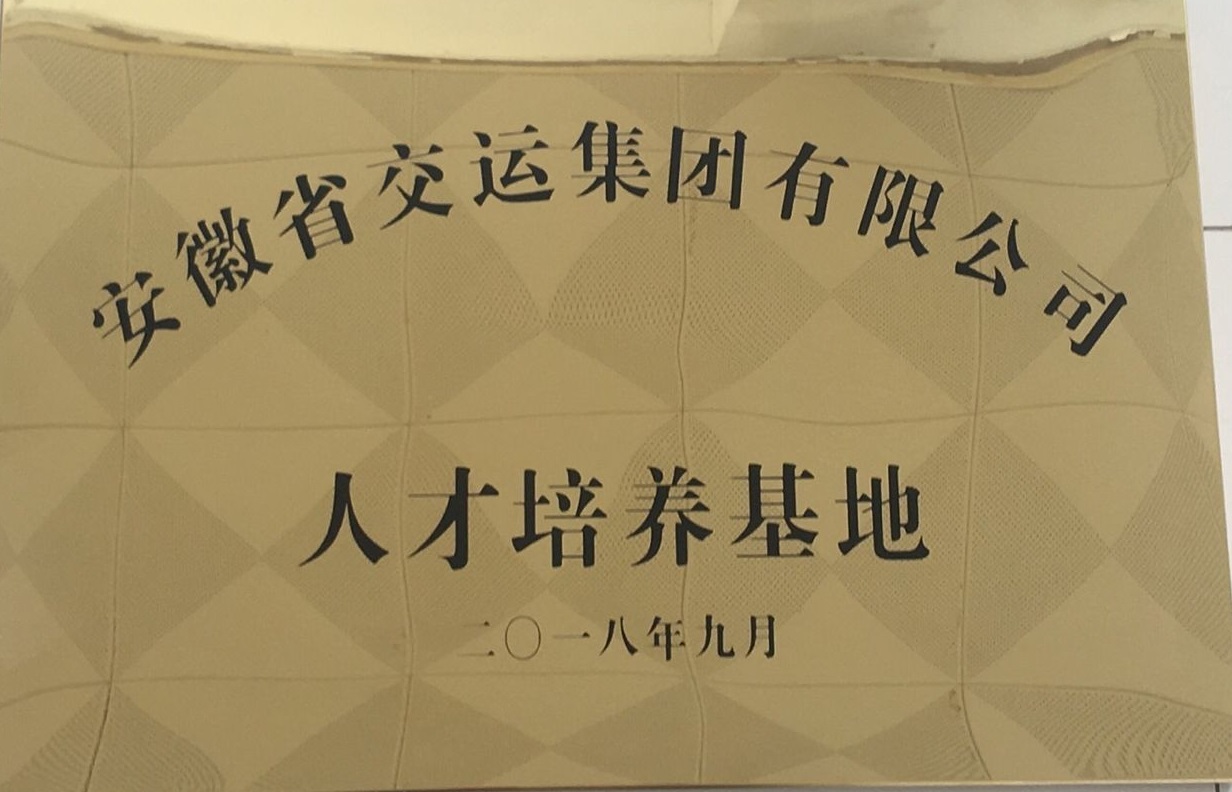 安徽省交运集团有限公司
人才培养基地
二〇一八年九月